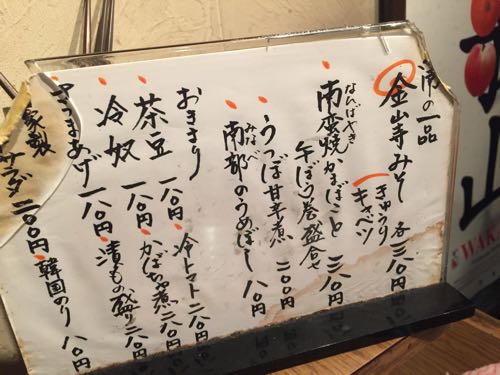 濱の一品
金山寺みそ
きゅうり
キャベツ
各三八〇円
なんばんやき
南蛮焼かまぼこと
牛ぼう巻盛合せ
三八〇円
うつぼ甘辛煮 二八〇円
みなべ
南部のうめぼし 一八〇円
おきまり
冷トマト 二八〇円
茶豆 一八〇円
かぼちゃ煮 二八〇円
冷奴 一八〇円
漬もの盛 二八〇円
さつまあげ 一八〇円
韓国のり 八〇円
家製
サラダ 二〇〇円
山
WAKA